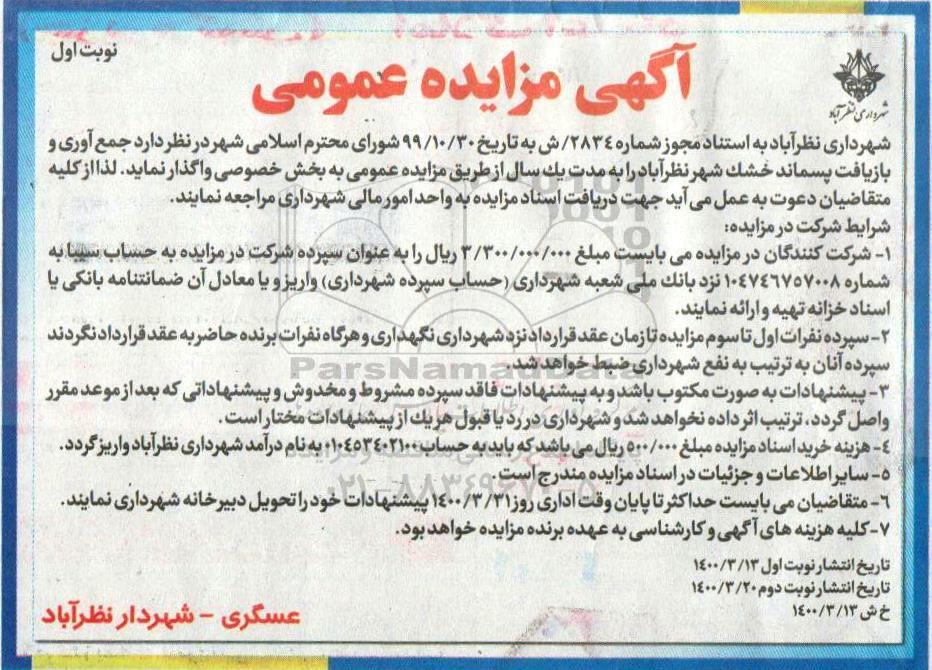 نوبت اول
آگهی مزایده عمومی
شهرداری نظرآباد
شهرداری نظرآباد به استناد مجوز شماره ۲۸۳۴/ش به تاریخ ۹۹/۱۰/۳۰ شورای محترم اسلامی شهر در نظر دارد جمع آوری و
بازیافت پسماند خشك شهر نظرآباد را به مدت یك سال از طریق مزایده عمومی به بخش خصوصی واگذار نماید. لذا از کلیه
متقاضیان دعوت به عمل می آید جهت دریافت اسناد مزایده به واحد امور مالی شهرداری مراجعه نمایند.
شرایط شرکت در مزایده:
۱- شرکت کنندگان در مزایده می بایست مبلغ ۳/۳۰۰/۰۰۰/۰۰۰ ریال را به عنوان سپرده شرکت در مزایده به حساب سیبا به
شماره ۱۰۴۷۴۶۷۵۷۰۰۸ نزد بانك ملی شعبه شهرداری (حساب سپرده شهرداری) واریز و یا معادل آن ضمانتنامه بانکی یا
اسناد خزانه تهیه و ارائه نمایند.
۲- سپرده نفرات اول تا سوم مزایده تا زمان عقد قرارداد نزد شهرداری نگهداری و هرگاه نفرات برنده حاضر به عقد قرارداد نگردند
سپرده آنان به ترتیب به نفع شهرداری ضبط خواهد شد.
۳- پیشنهادات به صورت مکتوب باشد و به پیشنهادات فاقد سپرده مشروط و مخدوش و پیشنهاداتی که بعد از موعد مقرر
واصل گردد، ترتیب اثر داده نخواهد شد و شهرداری در رد یا قبول هر یك از پیشنهادات مختار است.
۴- هزینه خرید اسناد مزایده مبلغ ۵۰۰/۰۰۰ ریال می باشد که باید به حساب ۰۱۰۴۵۳۴۰۲۱۰۰ به نام درآمد شهرداری نظرآباد واریز گردد.
۵- سایر اطلاعات و جزئیات در اسناد مزایده مندرج است.
۶- متقاضیان می بایست حداکثر تا پایان وقت اداری روز ۱۴۰۰/۳/۳۱ پیشنهادات خود را تحویل دبیرخانه شهرداری نمایند.
۷- کلیه هزینه های آگهی و کارشناسی به عهده برنده مزایده خواهد بود.
تاریخ انتشار نوبت اول ۱۴۰۰/۳/۱۳
تاریخ انتشار نوبت دوم ۱۴۰۰/۳/۲۰
خ ش ۱۴۰۰/۳/۱۳
عسگری - شهردار نظرآباد
ParsNamadData
۰۲۱-۸۸۳۴۹۶۷۰-۵